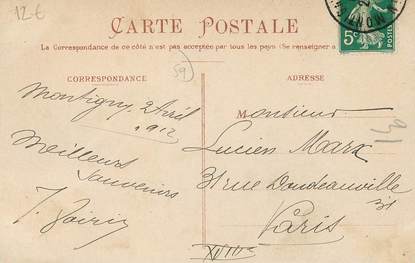 12 €
CARTE POSTALE
La Correspondance de ce côté n'est pas acceptée par tous les pays (Se renseigner à
5c
POSTES
59
CORRESPONDANCE
ADRESSE
Montigny 2 Avril
1912
Meilleurs
souvenirs
Monsieur
Lucien Marx
31 rue Doudeauville
31
Paris
XVIIIe